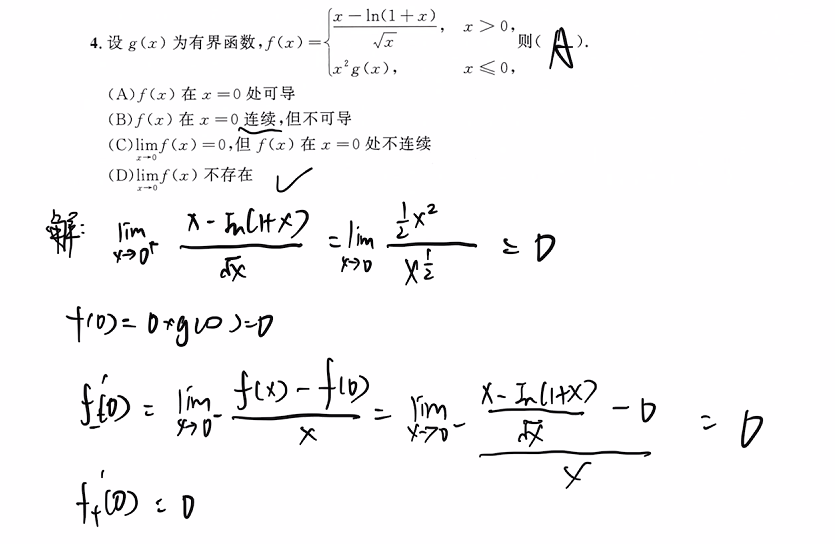 4. 设 g(x) 为有界函数, f(x) = { (x − ln(1+x))/√x, x > 0, x²g(x), x ≤ 0, 则( A ).
(A) f(x) 在 x = 0 处可导
(B) f(x) 在 x = 0 连续, 但不可导
(C) lim_{x→0} f(x) = 0, 但 f(x) 在 x = 0 处不连续
(D) lim_{x→0} f(x) 不存在 ✓
解: lim_{x→0⁺} (x − ln(1+x))/√x = lim_{x→0} (½x²)/(x^{1/2}) = 0
f(0) = 0×g(0) = 0
f₋'(0) = lim_{x→0⁻} (f(x) − f(0))/x = lim_{x→0⁻} ((x − ln(1+x))/√x − 0)/x = 0
f₊'(0) = 0